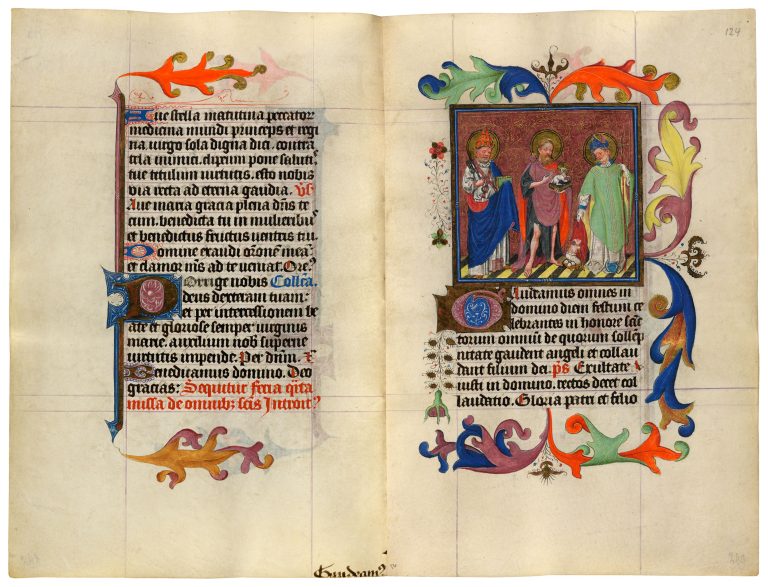 Aue stella matutina peccator
medicina mundi princeps et regi
na. uirgo sola digna dici. contra
tela inimici. clipeum pone salutis
tue titulum uirtutis. esto nobis
via recta ad eterna gaudia. Vs
Aue maria gracia plena dns te
cum. benedicta tu in mulieribus
et benedictus fructus ventris tui.
Domine exaudi oronem meã
et clamor ms ad te veniat. Ore
Porrige nobis Collcã.
deus dexteram tuam:
et per intercessionem be
ate et gloriose semper uirginis
marie. auxilium nob superne
uirtutis impende. Per dnm.
Benedicamus domino. Deo
gracias: Sequitur feria qnta
missa de omnib scis Introit
Gaudeam
124
Gaudeamus omnes in
domino diem festum ce
lebrantes in honore sctc
torum omnium de quorum sollep
nitate gaudent angeli et collau
dant filium dei. ps Exultate
iusti in domino. rectos decet col
laudatio. Gloria patri et filio